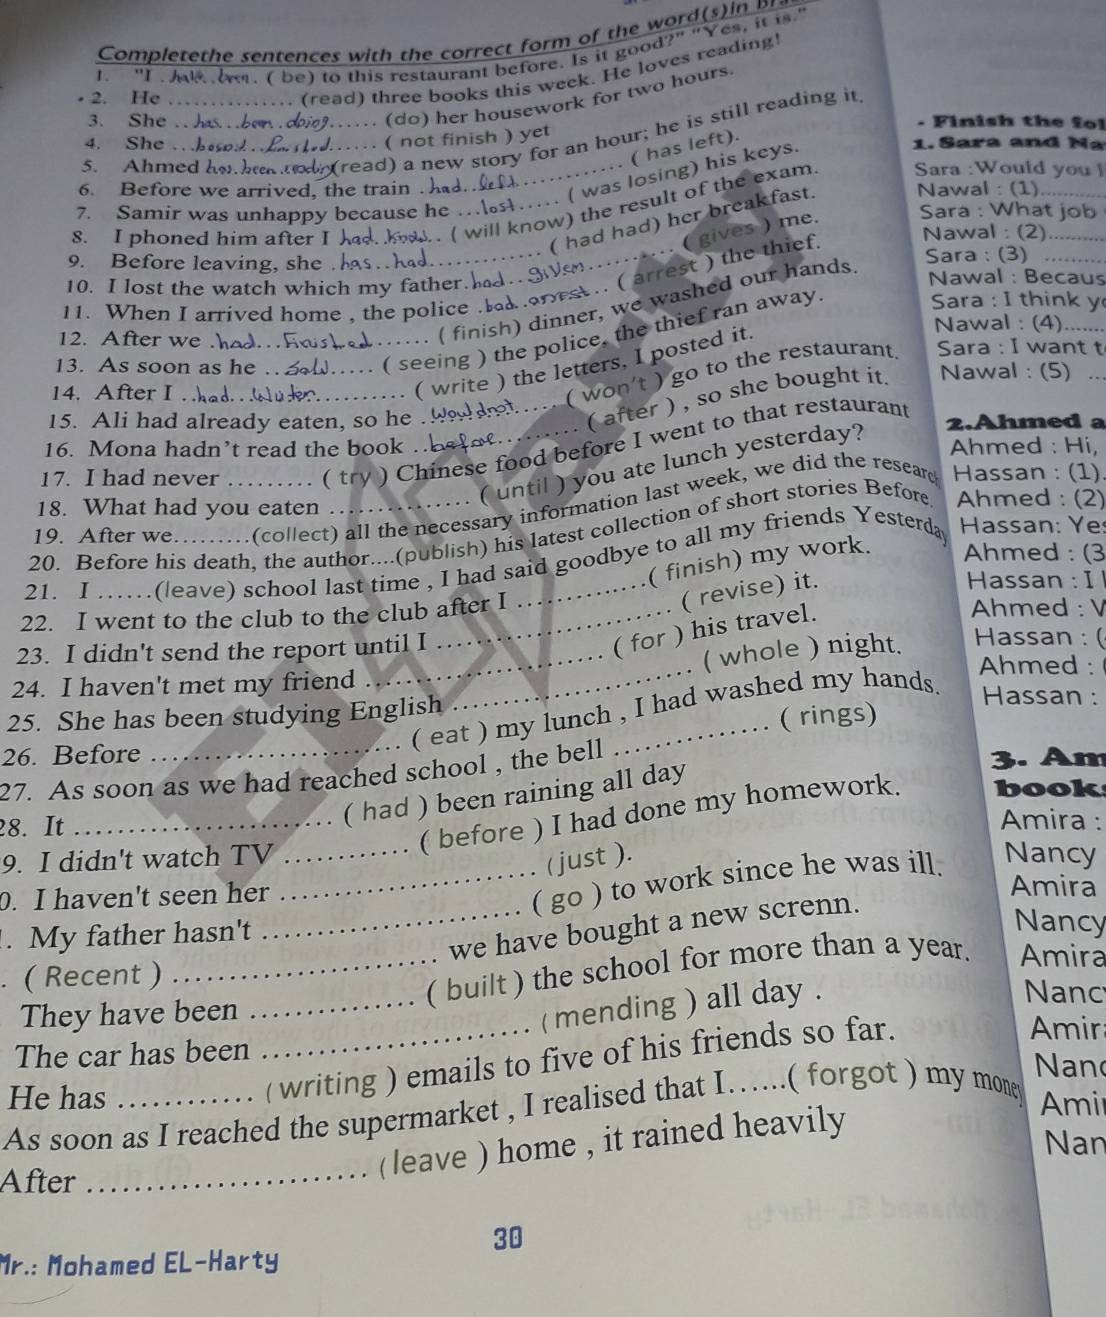 Completethe sentences with the correct form of the word(s)in
1. "I .have..been. ( be) to this restaurant before. Is it good?" "Yes, it is."
2. He .............. (read) three books this week. He loves reading!
3. She ..has..been.doing...... (do) her housework for two hours.
4. She ...... ( not finish ) yet
5. Ahmed has.been.reading(read) a new story for an hour; he is still reading it.
6. Before we arrived, the train .had..left............ ( has left).
7. Samir was unhappy because he ...lost..... ( was losing) his keys.
8. I phoned him after I had..know.. ( will know) the result of the exam.
9. Before leaving, she .has..had............. ( had had) her breakfast.
10. I lost the watch which my father.had..given.......... ( gives ) me.
11. When I arrived home , the police .had.arrest.. ( arrest ) the thief.
12. After we .had...Finished...... ( finish) dinner, we washed our hands.
13. As soon as he ........ ( seeing ) the police, the thief ran away.
14. After I ..had............. ( write ) the letters, I posted it.
15. Ali had already eaten, so he ..would not..... ( won't ) go to the restaurant.
16. Mona hadn't read the book ..before......... ( after ) , so she bought it.
17. I had never ......... ( try ) Chinese food before I went to that restaurant
18. What had you eaten ............... ( until ) you ate lunch yesterday?
19. After we.........(collect) all the necessary information last week, we did the research
20. Before his death, the author....(publish) his latest collection of short stories Before.
21. I ......(leave) school last time , I had said goodbye to all my friends Yesterday
22. I went to the club to the club after I ..............( finish) my work.
23. I didn't send the report until I ......................... ( revise) it.
24. I haven't met my friend ......................... ( for ) his travel.
25. She has been studying English ......................... ( whole ) night.
26. Before ......................... ( eat ) my lunch , I had washed my hands.
27. As soon as we had reached school , the bell ................ ( rings)
28. It ......................... ( had ) been raining all day
9. I didn't watch TV ............. ( before ) I had done my homework.
0. I haven't seen her ......................... (just ).
. My father hasn't ......................... ( go ) to work since he was ill.
. ( Recent ) ......................... we have bought a new screnn.
They have been ................. ( built ) the school for more than a year.
The car has been ......................... (mending ) all day .
He has ............. (writing ) emails to five of his friends so far.
As soon as I reached the supermarket , I realised that I.......( forgot ) my money
After ......................... (leave ) home , it rained heavily
30
Mr.: Mohamed EL-Harty
EL-Harty
- Finish the fol
1. Sara and Na
Sara :Would you l
Nawal : (1)..........
Sara : What job
Nawal : (2).........
Sara : (3) .........
Nawal : Becaus
Sara : I think yo
Nawal : (4).......
Sara : I want t
Nawal : (5) ..
2.Ahmed a
Ahmed : Hi,
Hassan : (1).
Ahmed : (2)
Hassan: Yes
Ahmed : (3
Hassan : I
Ahmed : W
Hassan : (
Ahmed : (
Hassan :
3. Am
books
Amira :
Nancy
Amira
Nancy
Amira
Nanc
Amir
Nanc
Amir
Nan